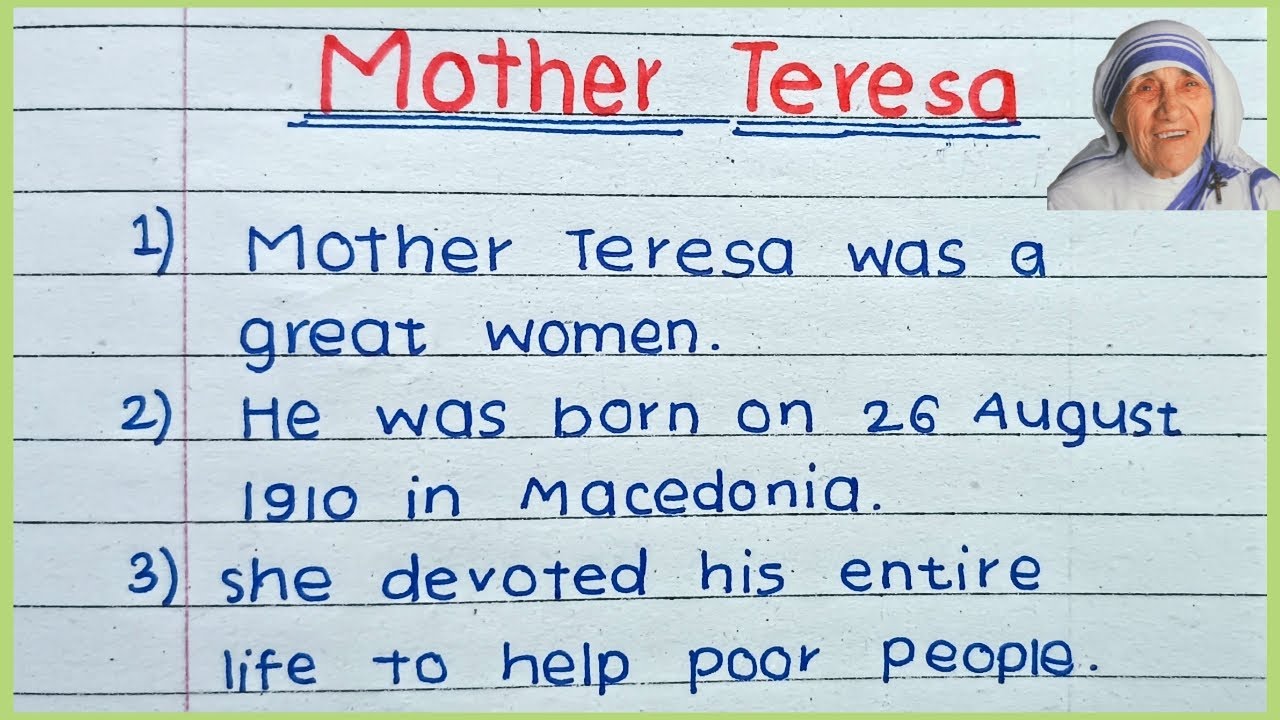 Mother Teresa
1) Mother Teresa was a
great women.
2) He was born on 26 August
1910 in Macedonia.
3) she devoted his entire
life to help poor people.